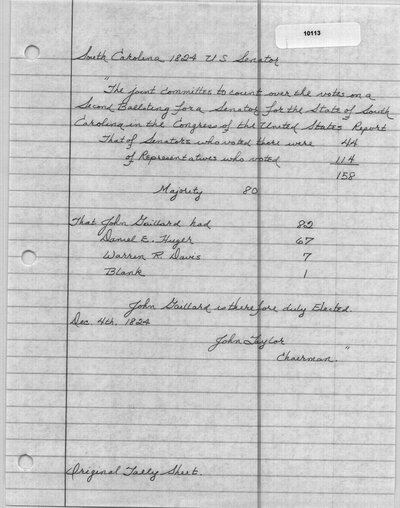 10113
South Carolina 1824 U.S. Senator
"The joint committee to count over the votes on a
Second Balloting for a Senator for the State of South
Carolina in the Congress of the United States Report
That of Senators who voted there were 44
of Representatives who voted 114
158
Majority 80
That John Gaillard had 82
Daniel E. Huger 67
Warren R. Davis 7
Blank 1
John Gaillard is therefore duly Elected.
Dec. 4th, 1824
John Taylor
Chairman."
Original Tally Sheet.